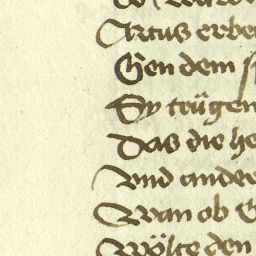 Artus erbe
Gen dem
Sy trügen
Das die he
Vnd ander
Wan ob
Wölte den